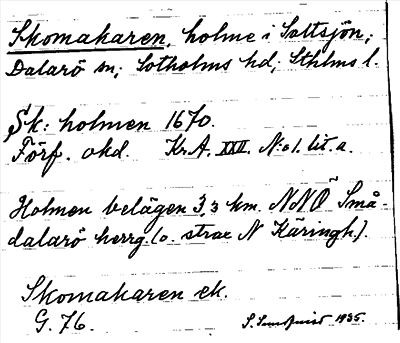 Skomakaren, holme i Saltsjön;
Dalarö sn; Sotholms hd; Sthlms l.
Sk: holmen 1670.
Förf. okd. Kr.A. XXII. N:o 1. lit. a.
Holmen belägen 3,3 km. NNÖ Små-
dalarö herrg. (o. strax N Käringh.).
Skomakaren ek.
G. 76. S. 1935.